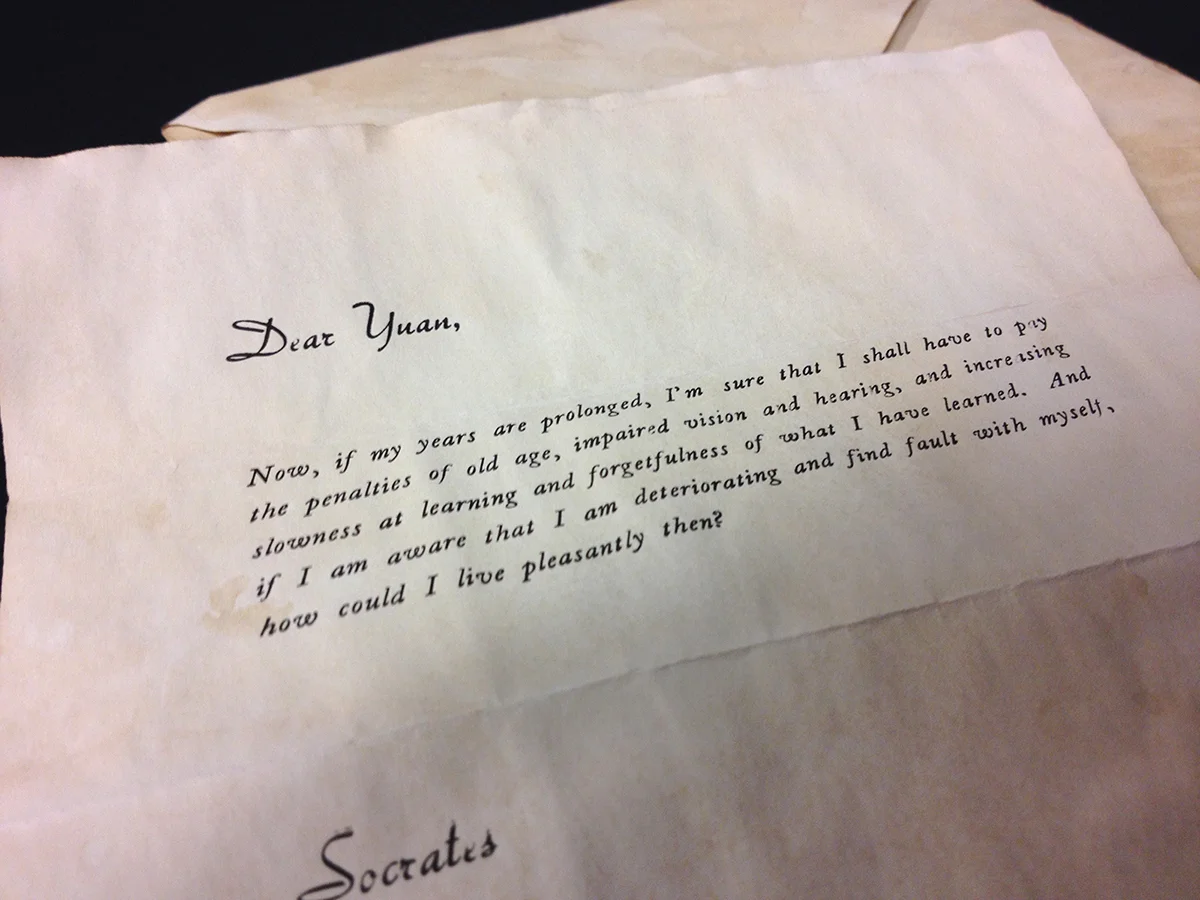 Dear Yuan,
Now, if my years are prolonged, I'm sure that I shall have to pay
the penalties of old age, impaired vision and hearing, and increasing
slowness at learning and forgetfulness of what I have learned. And
if I am aware that I am deteriorating and find fault with myself,
how could I live pleasantly then?
Socrates